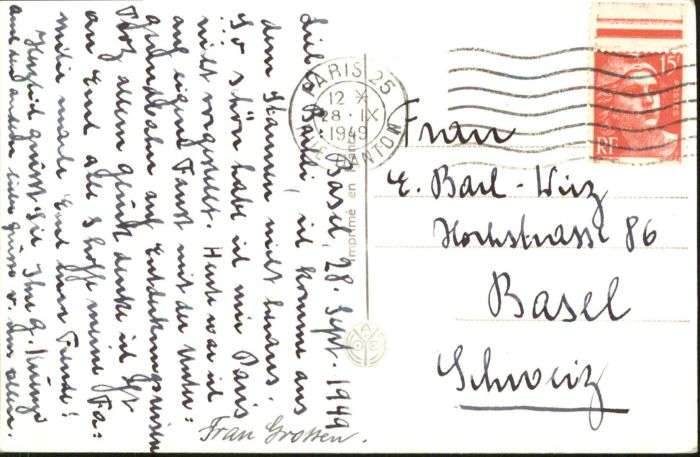 Basel, 28 Sept. 1949
Liebe Baudi, ich komme aus
dem Staunen nicht heraus.
So schön habe ich mir Paris
nicht vorgestellt. Heute war ich
auf eigene Faust mit der Unter-
grundbahn auf Entdeckungsreisen
Trotz allem Glück denke ich oft
an Euch alle & hoffe meine Fa-
milie mache Euch Freude!
Herzlich grüsst Sie Ihre
Frau Grossen.
PARIS 25
12 *
28 · IX
1949
RUE DANTON
15F
RF
Imprimé en
Frau
E. Barl-Wirz
Hochstrasse 86
Basel
Schweiz